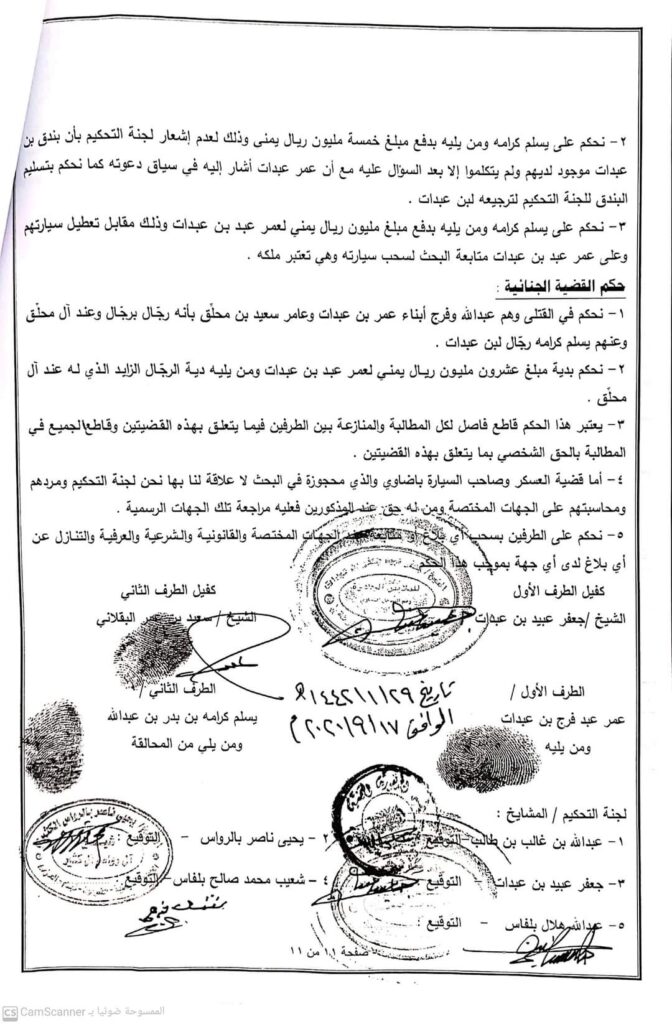 ٢- نحكم على يسلم كرامه ومن يليه بدفع مبلغ خمسة مليون ريال يمني وذلك لعدم إشعار لجنة التحكيم بأن بندق بن
عبدات موجود لديهم ولم يتكلموا إلا بعد السؤال عليه مع أن عمر عبدات أشار إليه في سياق دعوته كما نحكم بتسليم
البندق للجنة التحكيم لترجيعه لبن عبدات .
٣- نحكم على يسلم كرامه ومن يليه بدفع مبلغ مليون ريال يمني لعمر عبد بن عبدات وذلك مقابل تعطيل سيارتهم
وعلى عمر عبد بن عبدات متابعة البحث لسحب سيارته وهي تعتبر ملكه .
حكم القضية الجنائية :
١- نحكم في القتلى وهم عبدالله وفرج أبناء عمر بن عبدات وعامر سعيد بن محلّق بأنه رجّال برجّال وعند آل محلق
وعنهم يسلم كرامه رجّال لبن عبدات .
٢- نحكم بدية مبلغ عشرون مليون ريال يمني لعمر عبد بن عبدات ومن يليه دية الرجّال الزايد الذي له عند آل
محلّق .
٣- يعتبر هذا الحكم قاطع فاصل لكل المطالبة والمنازعة بين الطرفين فيما يتعلق بهذه القضيتين وقاطع الجميع في
المطالبة بالحق الشخصي بما يتعلق بهذه القضيتين .
٤- أما قضية العسكر وصاحب السيارة باضاوي والذي محجوزة في البحث لا علاقة لنا بها نحن لجنة التحكيم ومردهم
ومحاسبتهم على الجهات المختصة ومن له حق عند المذكورين فعليه مراجعة تلك الجهات الرسمية .
٥- نحكم على الطرفين بسحب أي بلاغ أو متابعة الجهات المختصة والقانونية والشرعية والعرفية والتنازل عن
أي بلاغ لدى أي جهة بموجب هذا الحكم
كفيل الطرف الأول
كفيل الطرف الثاني
الشيخ /جعفر عبيد بن عبدات
الشيخ / سعيد البقلاني
الطرف الأول /
تاريخ ١٤٤٢/١/٢٩ه
الطرف الثاني /
عمر عبد فرج بن عبدات
الموافق ٢٠٢٠/٩/١٧م
يسلم كرامه بن بدر بن عبدالله
ومن يليه
ومن يلي من المحالقة
لجنة التحكيم / المشايخ :
١- عبدالله بن غالب بن طالب- التوقيع
٢- يحيى ناصر بالرواس - التوقيع :
٣- جعفر عبيد بن عبدات - التوقيع
٤- شعيب محمد صالح بلفاس- التوقيع
٥- عبدالله هلال بلفاس - التوقيع :
صفحة ١١ من ١١
CS CamScanner الممسوحة ضوئيا بـ